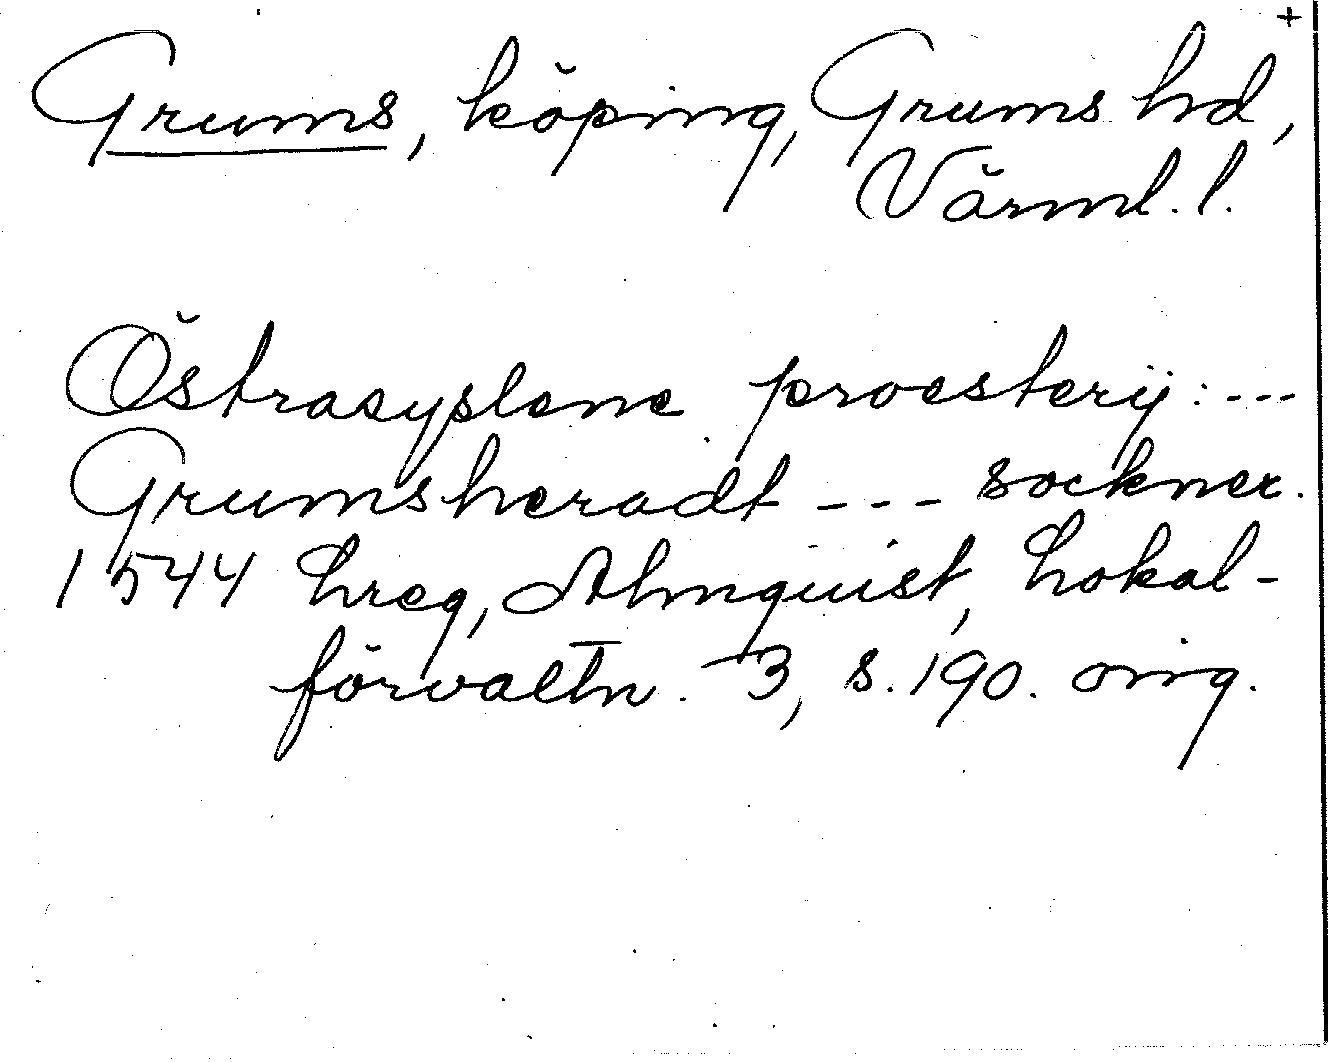 +
Grums, köping, Grums hd,
Värml. l.
Östrasyslene proesterij: ---
Grumsheradt --- sockner.
1544 Lreg, Almquist, Lokal-
förvaltn. 3, s. 190. orig.